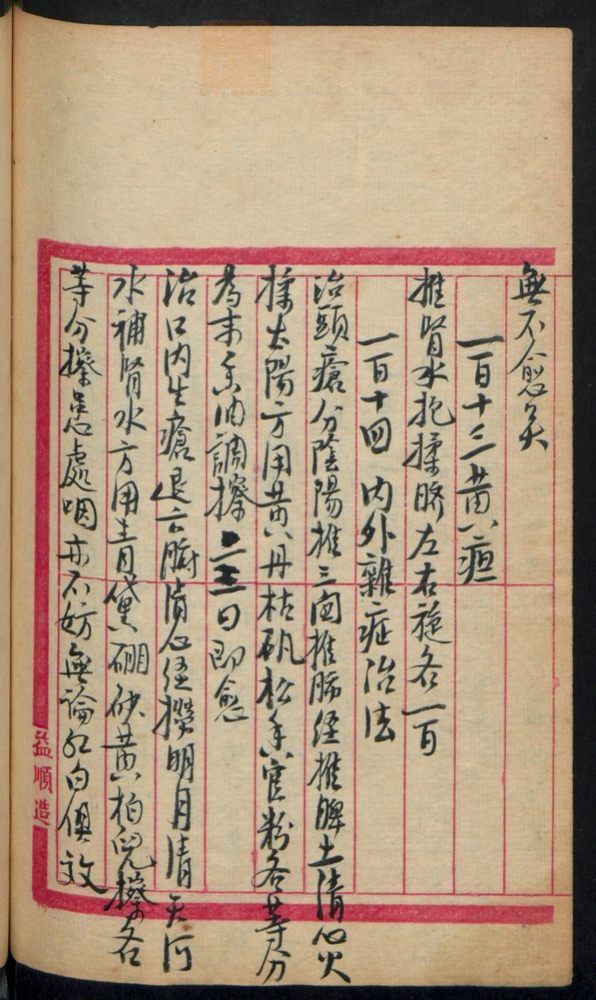 無不愈矣
一百十三黃疸
推腎水抱揉臍左右旋各一百
一百十四 內外雜症治法
治頭瘡分陰陽推三関推肺經推脾土清心火
揉太陽方用黃丹枯矾松香官粉各等分
為末香油調擦二三日即愈
治口內生瘡退六腑清心經撈明月清天河
水補腎水方用青黛硼砂黃柏兒擦各
等分擦患處咽亦不妨無論紅白俱效
益順造